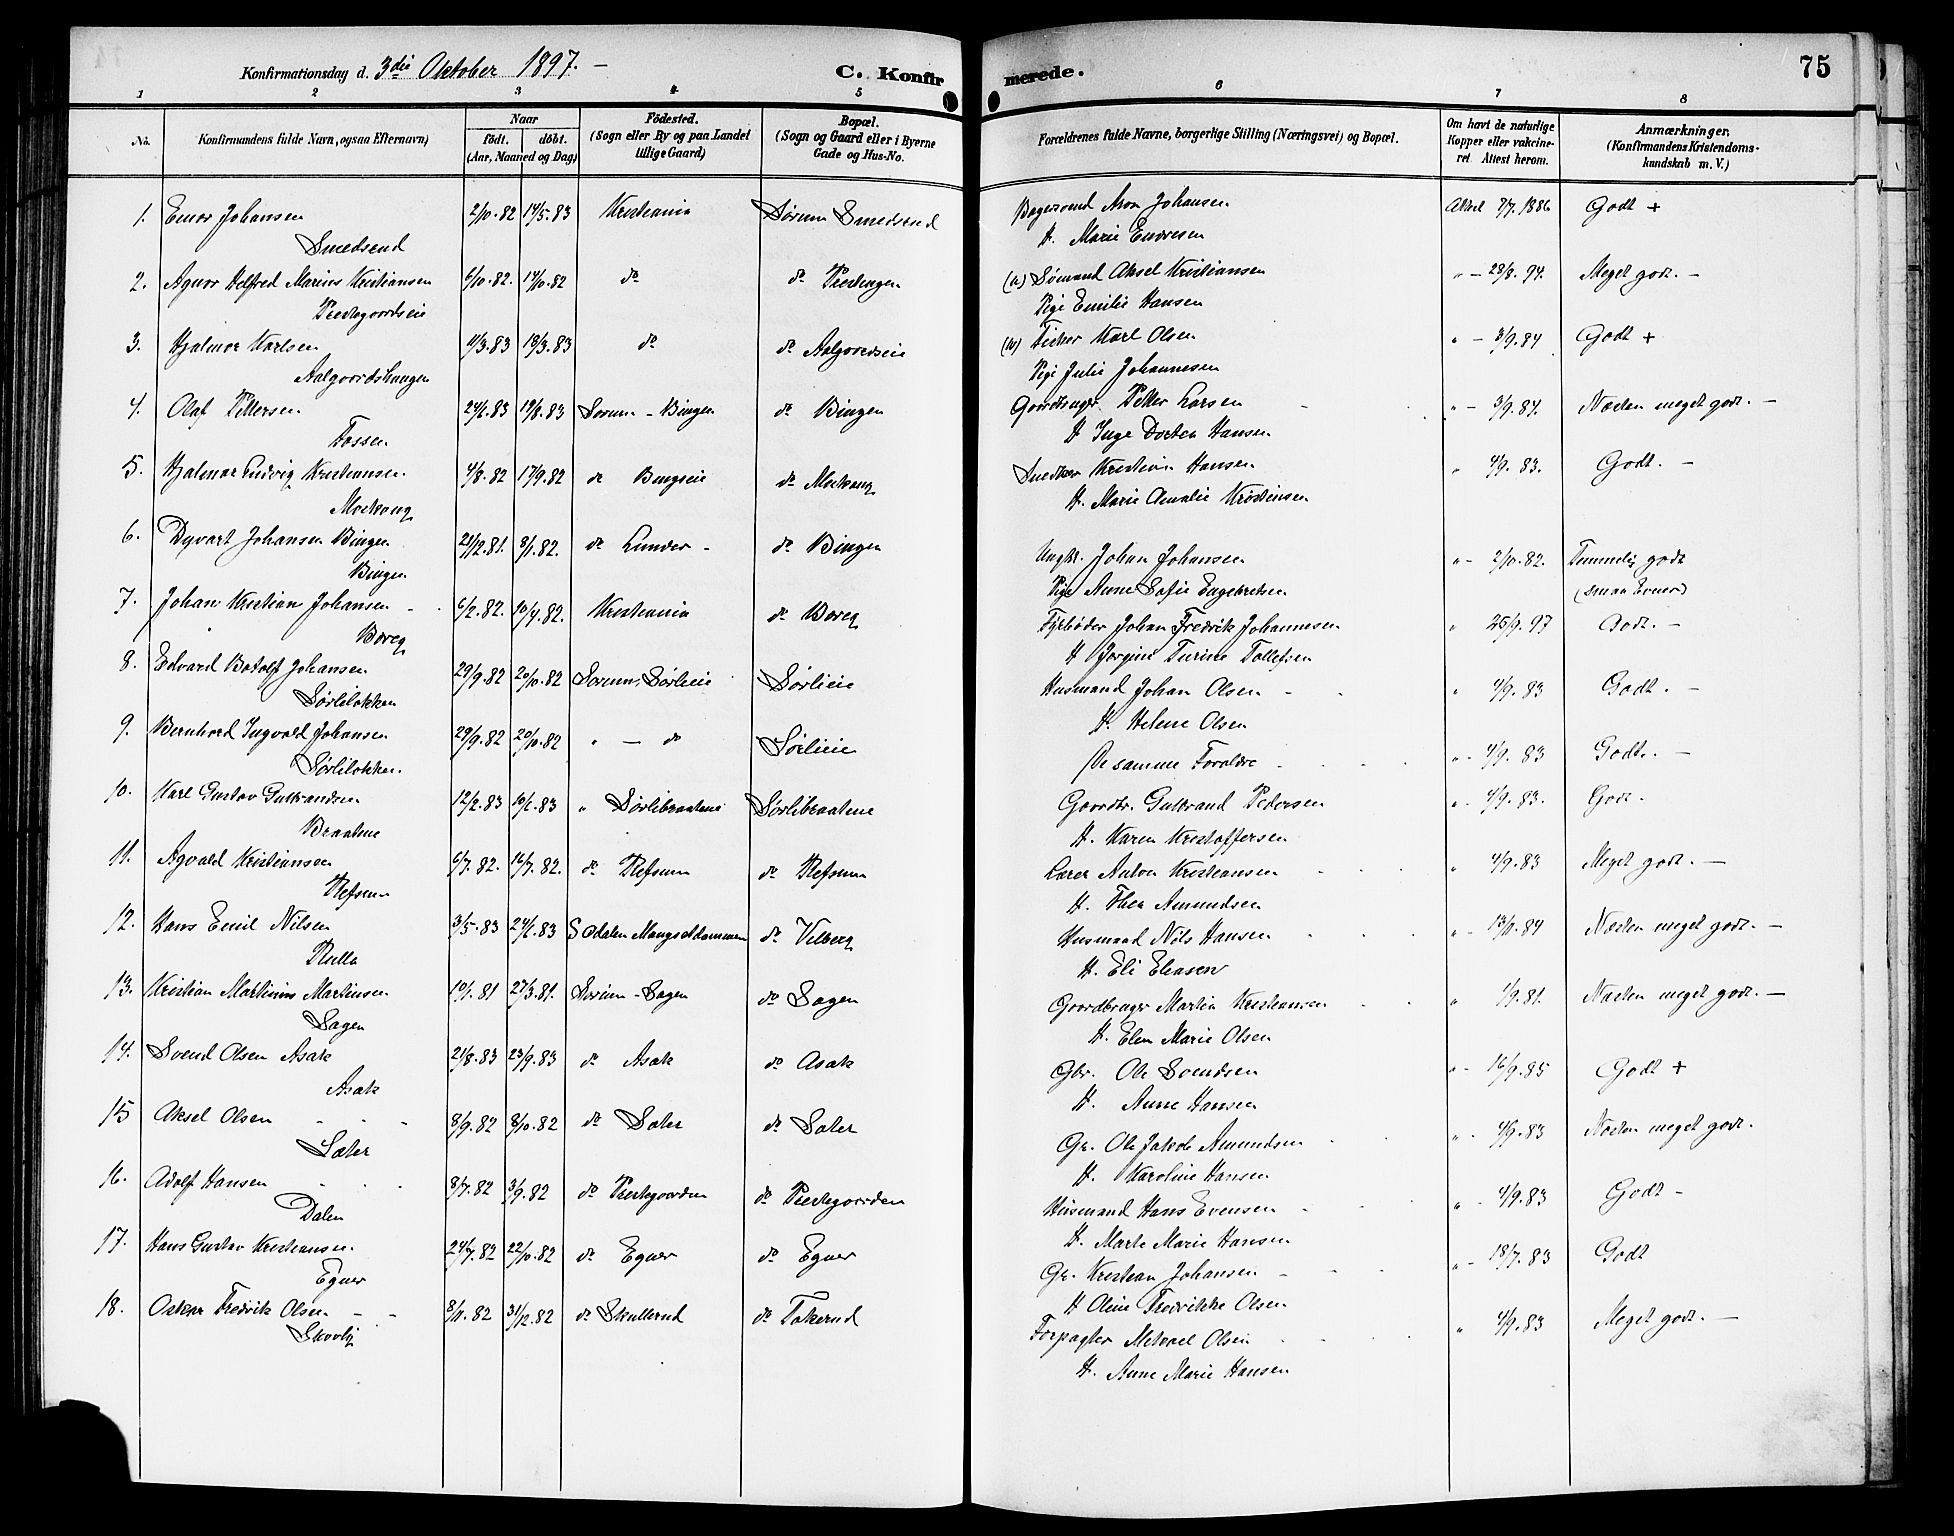 Konfirmationsdag d. 3die Oktober 1897. –
C. Konfir
merede.
75
1 2 3 4 5
6 7 8
No.
Konfirmandens fulde Navn, ogsaa Efternavn)
Naar
født. døbt.
(Aar, Maaned og Dag)
Fødested.
(Sogn eller By og paa Landet
tillige Gaard)
Bopæl.
(Sogn og Gaard eller i Byerne
Gade og Hus-No.
Forældrenes fulde Navne, borgerlige Stilling (Næringsvei) og Bopæl.
Om havt de naturlige
Kopper eller vakcine-
ret. Attest herom.
Anmærkninger.
(Konfirmandens Kristendoms-
kundskab m. V.)
1. Einar Johansen 2/10.82 14/5.83 Kristiania Sørum Smedsrud
Smedsrud
2. Agnar Helfred Marius Kristiansen 6/10.82. 14/10.82 do do Prestengen
Prestegaardseie
3. Hjalmar Karlsen 11/3.83 18/3.83 do do Aalgaardseie
Aalgaardshaugen
4. Olaf Pettersen 24/6.83 19/8.83 Sørum - Bingen do Bingen
Fossen
5. Hjalmar Ludvig Kristiansen 4/8.82 17/9.82 do Bingseie do Morkong
Morkong
6. Dyvart Johansen Bingen 21/12.81. 8/1.82. do Lunder - do Bingen
Bingen
7. Johan Kristian Johansen 6/2.82. 10/4.82. Kristiania do Boreg
Boreg
8. Edvard Botolf Johansen 29/9.82 20/10.82 Sørum, Sørlieie Sørlieie
Sørliløkken
9. Bernhard Ingvald Johansen 29/9.82 20/10.82 " — do Sørlieie
Sørliløkken.
10. Karl Gustav Gulbrandsen 12/2.83 10/6.83 " Sørlibraatene Sørlibraatene
Braatene
11. Agvald Kristiansen 6/7.82. 16/7.82. do Refsum do Refsum
Refsum
12. Hans Emil Nilsen 3/5.83 24/6.83 S Odalen Mangseldammen do Vilberg
Rulla
13. Kristian Martinius Martinsen 10/1.81 27/3.81. Sørum - Sagen do Sagen
Sagen
14. Svend Olsen Asak 21/8.83 23/9.83 do Asak do Asak
Asak
15 Aksel Olsen 8/9.82 8/10.82 do Sæter do Sæter
Sæter
16. Adolf Hansen 8/7.82 3/9.82 do Prestegaarden do Prestegaarden
Dalen
17. Hans Gustav Kristiansen. 24/7.82 22/10.82 do Egner do Egner
Egner
18. Oskar Fredrik Olsen 8/11.82 31/12.82 do Skullerud do Takerud
Skovly
Bagersvend Aron Johansen Attest 7/7.1886 Godt +
H. Marie Endresen
(u) Sømand Aksel Kristiansen " — 28/8.94. Meget godt. –
Pige Emilie Hansen
(u) Fisker Karl Olsen " — 3/9.84 Godt +
Pige Julie Johannesen
Gaardbruger Petter Larsen " — 3/9.84. Næsten meget godt. –
H Inge Dorthea Hansen
Snedker Kristian Hansen " 4/9.83. Godt. –
H. Marie Amalie Kristiansen
Ungk. Johan Johansen " - 2/10.82. Temmelig godt
Pige Anne Sofie Engebretsen (smaa Evner)
Fyrbøder Johan Fredrik Johannesen " 25/9.97 Godt. –
H Jørgine Turine Tollefsen
Husmand Johan Olsen " 4/9.83 Godt. –
H. Helene Olsen
De samme Forældre " - 4/9.83 Godt. –
Gaardbr. Gulbrand Pedersen " - 4/9.83. Godt.
H. Karen Kristoffersen
Lærer Anton Kristiansen " 4/9.83 Meget godt. –
H. Thea Amundsen
Husmand Nils Hansen " - 13/11.84 Næsten meget godt. –
H. Eli Eliasen
Gaardbruger Martin Kristiansen " 1/9.81. Næsten meget godt. –
H. Elen Marie Olsen
Gbr. Ole Svendsen " - 16/9.85 Godt +
H. Anne Hansen
Gr. Ole Jakob Amundsen " - 4/9.83 Næsten meget godt.
H. Karoline Hansen
Husmand Hans Evensen " - 4/9.83 Godt –
H. Marte Marie Hansen
Gr. Kristian Johansen " - 18/7.83 Godt
H Oline Fredrikke Olsen
Forpagter Mikael Olsen " 4/9.83 Meget godt. –
H. Anne Marie Hansen